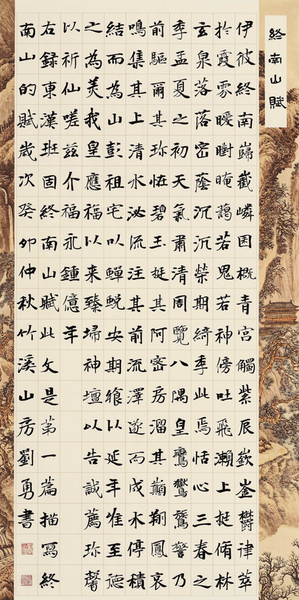 終南山賦
伊彼終南巋嶻嶙囷概青宮觸紫辰嶔崟鬱律萃
於霞雰曖曃晻藹若鬼若神傍吐飛瀨上挺脩林
玄泉落落密蔭沉沉榮期綺季此焉恬心三春之
季孟夏之初天氣肅清周覽八隅皇鸞鷟鷟警乃
前驅爾其珍怪碧玉挺其阿密房溜其巔翔鳳哀
鳴集其上清水泌流注其前流澤遂而成水停積
結而為山彭祖宅以蟬蛻安期饗以延年唯至德
之為美我皇應福以来臻埽神壇以告誠薦珍馨
以祈仙嗟兹介福永鍾億年
右録東漢班固終南山賦此文是第一篇描寫終
南山的賦歲次癸卯仲秋竹溪山房劉勇書